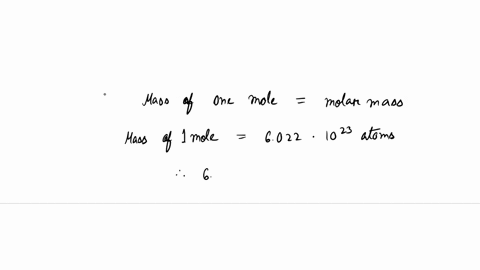 Mass of one mole = molar mass
Mass of 1 mole = 6.022 · 10²³ atoms
∴ 6.